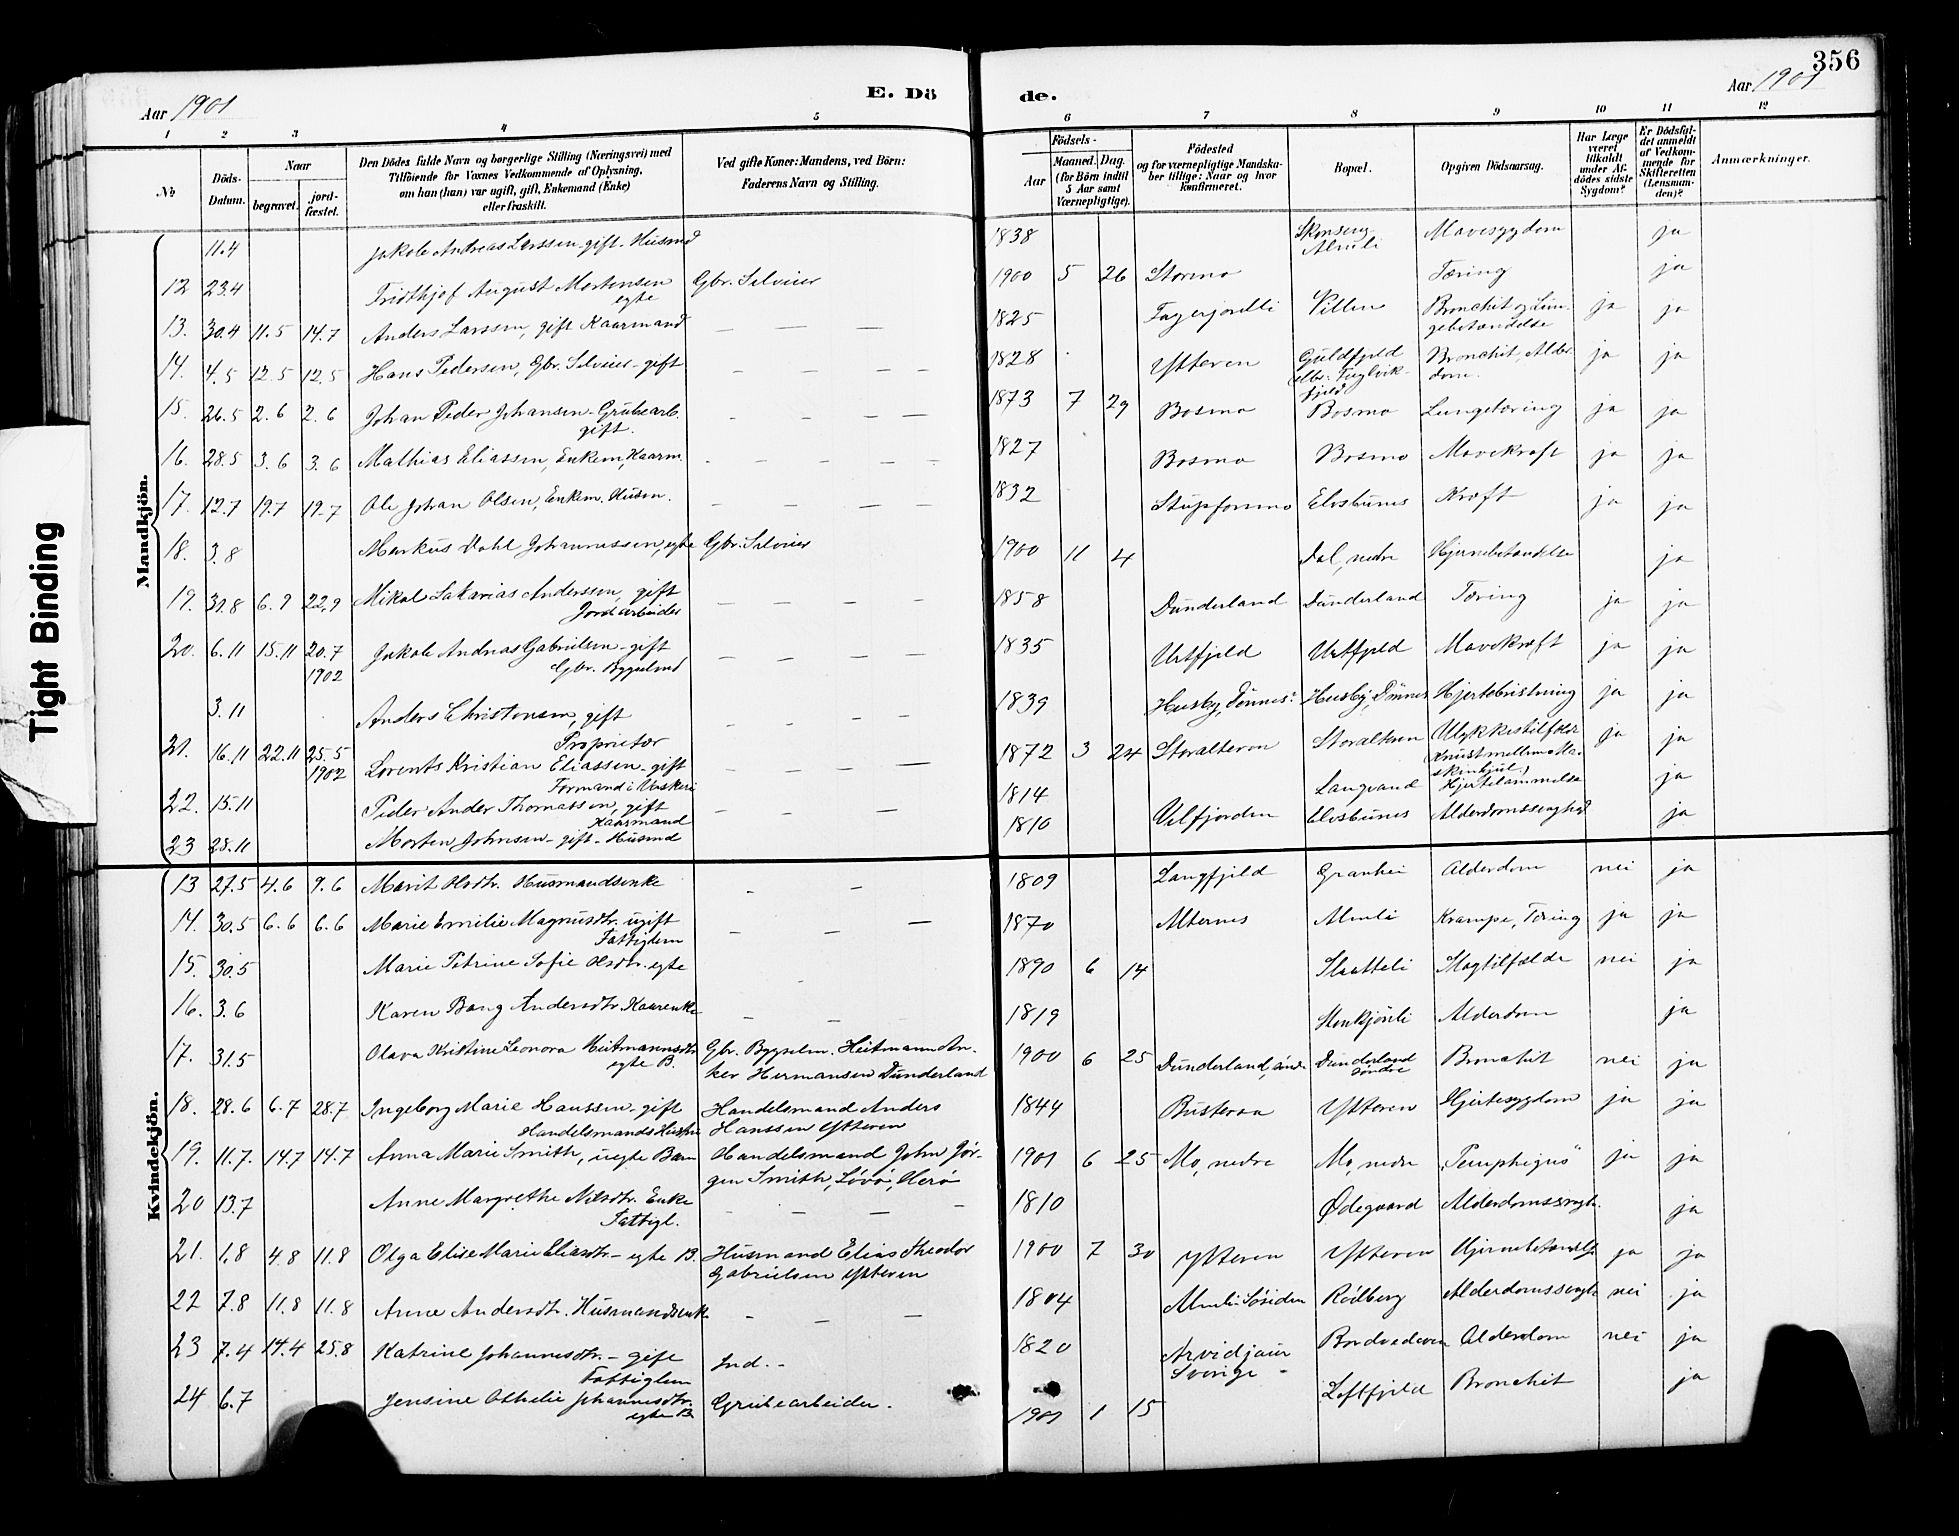 356
Aar 1901
E. Dö de.
Aar 1901
1 2 3 4 5 6 7 8 9 10 11 12
No
Döds-Datum.
Naar
begravet.
jordfæstet.
Den Dödes fulde Navn og borgerlige Stilling (Næringsvei) med
Tilföiende for Voxnes Vedkommende af Oplysning,
om han (hun) var ugift, gift, Enkemand (Enke)
eller fraskilt.
Ved gifte Koner: Mandens, ved Börn:
Faderens Navn og Stilling.
Födsels-
Aar
Maaned. Dag.
(for Børn indtil
5 Aar samt
Værnepligtige).
Födested
og for værnepligtige Mandska-
ber tillige: Naar og hvor
konfirmeret.
Bopæl.
Opgiven Dödsaarsag.
Har Læge
været
tilkaldt
under Af-
dødes sidste
Sygdom?
Er Dödsfal-
det anmeldt
af Vedkom-
mende for
Skifteretten
(Lensman-
den)?
Anmærkninger.
Tight Binding
Mandkjön.
11.4 Jakob Andreas Larssen gift. Husmd 1838 Almli Mavesygdom ja
12 23.4 Fridthjof August Mortensen egte Gbr. Selveier 1900 5 26 Stormo Tæring ja
13. 30.4 11.5 14.7 Anders Larssen, gift Kaarmand — — — 1825 Villen Bronchit og Lungebetændelse ja ja
14. 4.5 12.5 12.5 Hans Pedersen, Gbr. Selveier - gift — — — — 1828 Ytteren Guldfjeld Bronchit, Alderdom. ja ja
15. 26.5 2.6 2.6 Johan Peder Johansen - Grubearb. gift. — — — — 1873 7 29 Bosmo Bosmo Lungetæring ja ja
16. 28.5 3.6 3.6 Mathias Eliassen, Enkem, Kaarm. — — — — 1827 Bosmo Bosmo Mavekræft ja ja
17. 12.7 19.7 19.7 Ole Johan Olsen, Enkem. Husm. — — — — 1832 Stupforsmo Elvsbunes Kræft ja ja
18. 3.8 Markus Dahl Johannessen, egte Gbr. Selveier 1900 11 4 Dal, nedre Hjernebetændelse ja
19. 31.8 6.9 22.9 Mikal Sakarias Anderssen, gift Jordarbeider — — — — 1858 Dunderland Dunderland Tæring ja ja
20. 6.11 15.11 20.7 1902 Jakob Andreas Gabrielsen - gift Gbr. Bygselmd — — — — 1835 Urtfjeld Urtfjeld Mavekræft ja ja
3.11 Anders Christensen, gift Proprietær — — — — 1839 Husby, Dønnes Husby, Dønnes Hjertebristning ja ja
21. 16.11 22.11 25.5 1902 Lorents Kristian Eliassen - gift Formand i Vaskeri — — — — 1872 3 24 Storalteren Storalteren Ulykkestilfælde (Knust mellem Maskinhjul.) ja ja
22. 15.11 Peder Ander Thomassen, gift Kaarmand — — — 1814 Langvand Hjertelammelse ja
23 28.11 Morten Johnsen - gift. Husmd 1810 Velfjorden Elvsbunes Alderdomssvaghed ja
Kvindekjön.
13 27.5 4.6 9.6 Marit Olsdtr. Husmandsenke — — 1809 Langfjeld Granhei Alderdom nei ja
14. 30.5 6.6 6.6 Marie Emilie Magnusdtr. ugift Fattiglem — — — 1870 Alternes Almli Krampe, Tæring ja ja
15. 30.5 Marie Petrine Sofie Olsdtr. egte 1890 6 14 Slaatteli Slagtilfælde nei ja
16. 3.6 Karen Bang Andersdtr. Kaarenke — — 1819 Stenkjönli Alderdom ja
17. 31.5 Olava Kristine Leonora Heitmannsdtr egte B. Gbr. Bygselm. Heitmann Anker Hermansen Dunderland 1900 6 25 Dunderland, söndre Dunderland söndre Bronchit nei ja
18. 28.6 6.7 28.7 Ingeborg Marie Hanssen - gift Handelsmands Hustru Handelsmand Anders Hanssen Ytteren 1844 Busteraa Ytteren Hjertesygdom ja ja
19. 11.7. 14.7 14.7 Anna Marie Smith, uegte Barn Handelsmand John Jörgen Smith, Lövö, Herö 1901 6 25 Mo, nedre Mo, nedre "Pemphigus" ja ja
20 13.7 Anne Margrethe Nilsdtr. Enke Fattigl. — — — — 1810 Ødegaard Alderdomssvagh. ja
21. 1.8 4.8 11.8 Olga Elise Marie Eliasdtr. - egte B. Husmand Elias Theodor Gabrielsen Ytteren 1900 7 30 Ytteren Ytteren Hjernebetændelse ja ja
22 7.8 11.8 11.8 Anne Andersdtr. Husmandsenke — — — 1804 Almli Sösiden Rödberg Alderdomssvagh nei ja
23 7.4 14.4 25.8 Katrine Johannesdtr. - gift Fattiglem Ind. - 1820 Arvidjaur Sverige Alderdom nei ja
24 6.7 Jensine Othelie Johannesdtr. egte B Grubearbeider. 1901 1 15 Loftfjeld Bronchit ja